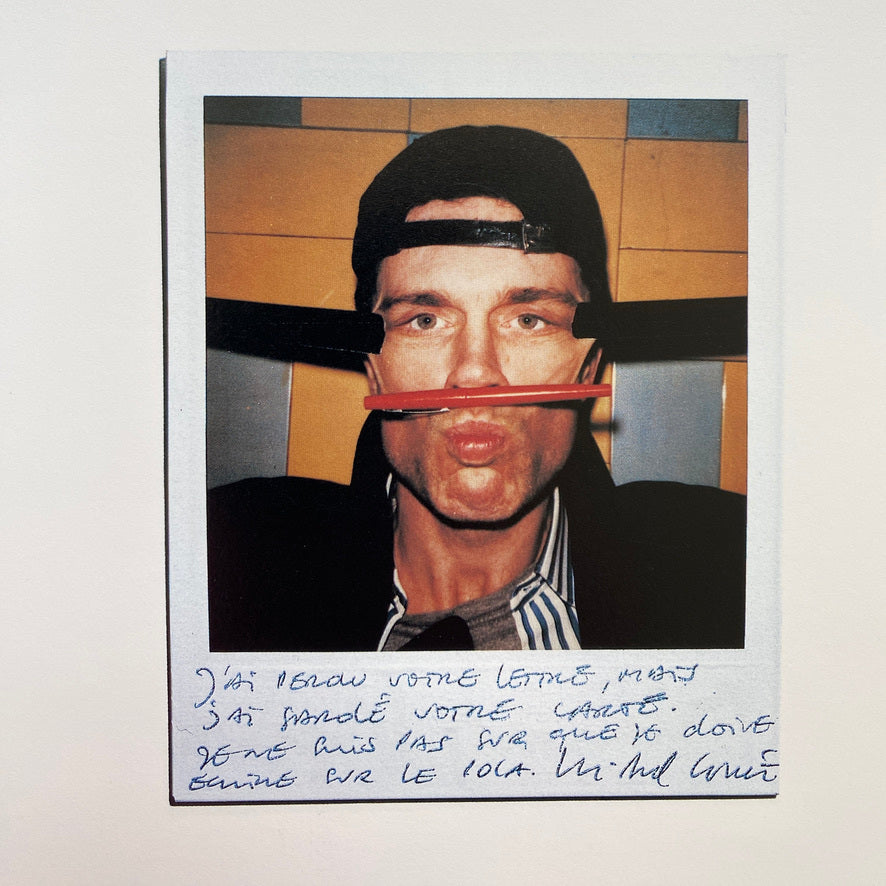 J'ai perdu votre lettre, mais
j'ai gardé votre carte.
Je ne suis pas sur que je doive
ecrire sur le pola. Michel Comte